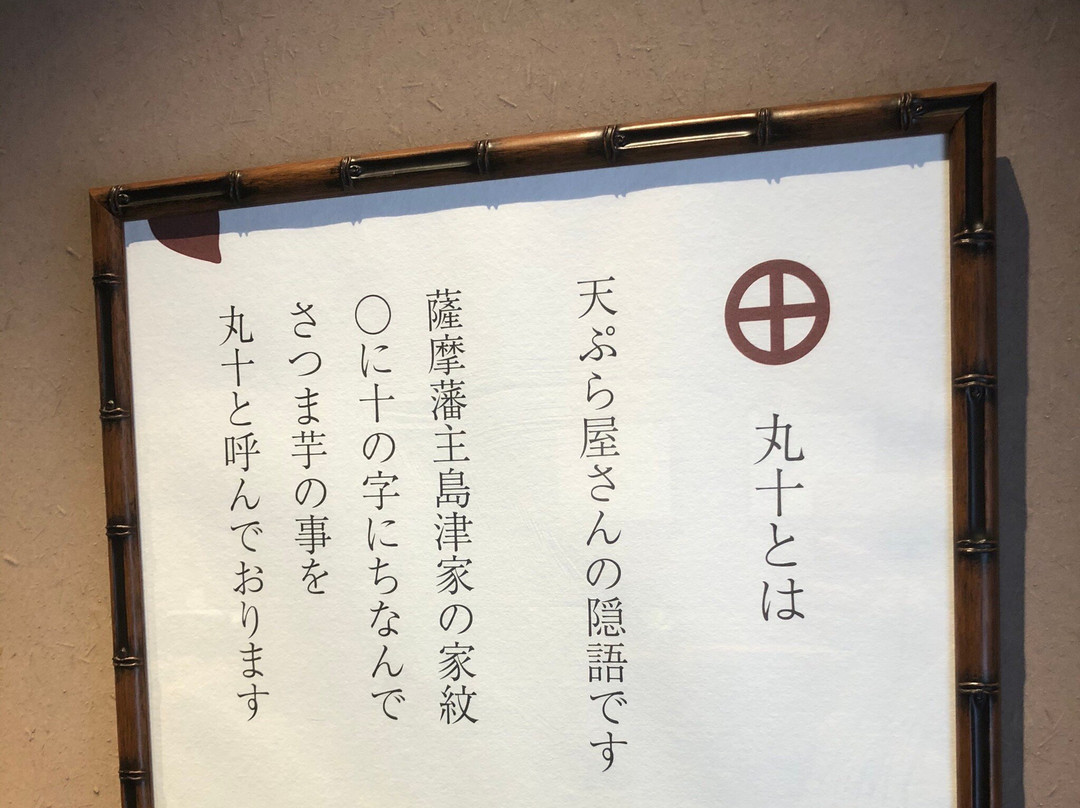 丸十とは
天ぷら屋さんの隠語です
薩摩藩主島津家の家紋
〇に十の字にちなんで
さつま芋の事を
丸十と呼んでおります